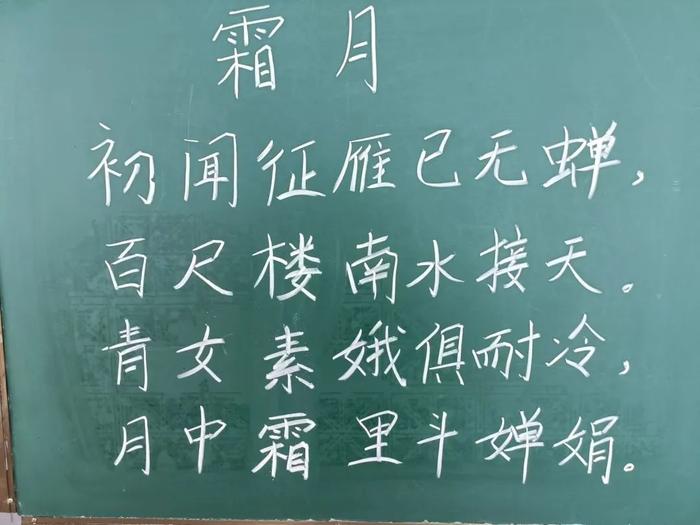 霜月
初闻征雁已无蝉,
百尺楼南水接天。
青女素娥俱耐冷,
月中霜里斗婵娟。